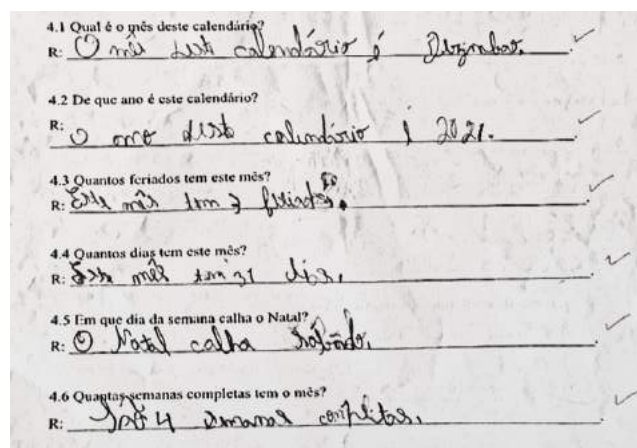 4.1 Qual é o mês deste calendário?
R: O mês deste calendário é Dezembro.
4.2 De que ano é este calendário?
R: O ano deste calendário é 2021.
4.3 Quantos feriados tem este mês?
R: Este mês tem 3 feriados.
4.4 Quantos dias tem este mês?
R: Este mês tem 31 dias.
4.5 Em que dia da semana calha o Natal?
R: O Natal calha Sábado.
4.6 Quantas semanas completas tem o mês?
R: São 4 semanas completas.